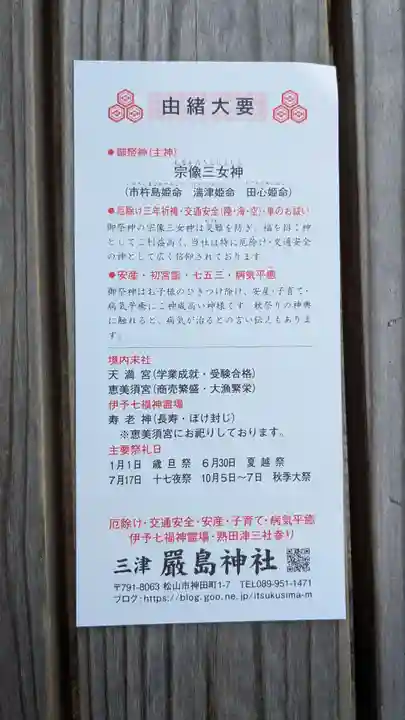 由緒大要
●御祭神(主神)
宗像三女神
(市杵島姫命 湍津姫命 田心姫命)
●厄除け三年祈祷・交通安全(陸・海・空)・車のお祓い
御祭神の宗像三女神は災難を防ぎ、福を招く神
としてご利益高く、当社は特に厄除け・交通安全
の神として広く信仰されております
●安産・初宮詣・七五三・病気平癒
御祭神はお子様のひきつけ除け、安産・子育て・
病気平癒にご神威高い神様です 秋祭りの神輿
に触れると、病気が治るとの言い伝えもありま
す。
境内末社
天満宮(学業成就・受験合格)
恵美須宮(商売繁盛・大漁繁栄)
伊予七福神霊場
寿老神(長寿・ぼけ封じ)
※恵美須宮にお祀りしております。
主要祭礼日
1月1日 歳旦祭 6月30日 夏越祭
7月17日 十七夜祭 10月5日～7日 秋季大祭
厄除け・交通安全・安産・子育て・病気平癒
伊予七福神霊場・熟田津三社参り
三津 厳島神社
〒791-8063 松山市神田町1-7 TEL089-951-1471
ブログ:https://blog.goo.ne.jp/itsukusima-m